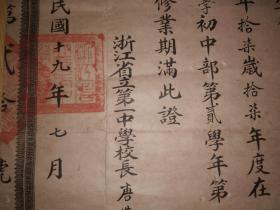 年拾柒歲拾柒年度在
學初中部第貳學年第
修業期滿此證
浙江省立第一中學校長唐
民國十九年七月
第貳拾號